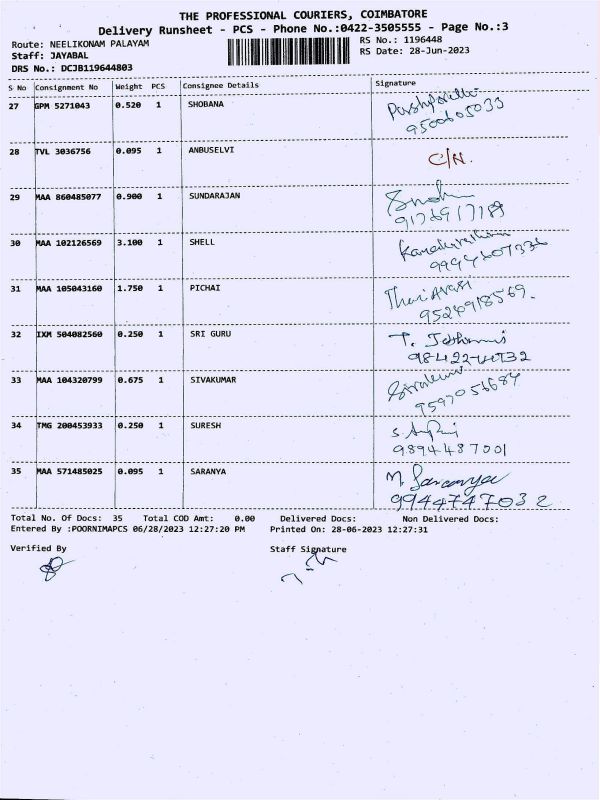 THE PROFESSIONAL COURIERS, COIMBATORE
Delivery Runsheet - PCS - Phone No.:0422-3505555 - Page No.:3
Route: NEELIKONAM PALAYAM
RS No.: 1196448
Staff: JAYABAL
RS Date: 28-Jun-2023
DRS No.: DCJB119644803
S No Consignment No Weight PCS Consignee Details Signature
27 GPM 5271043 0.520 1 SHOBANA
9500605033
28 TVL 3036756 0.095 1 ANBUSELVI C/N.
29 MAA 860485077 0.900 1 SUNDARAJAN
9176917189
30 MAA 102126569 3.100 1 SHELL
9994607336
31 MAA 105043160 1.750 1 PICHAI Thari Arasi
9524918569.
32 IXM 504082560 0.250 1 SRI GURU
33 MAA 104320799 0.675 1 SIVAKUMAR Sivakumar
9597056684
34 TMG 200453933 0.250 1 SURESH
9894487001
35 MAA 571485025 0.095 1 SARANYA M. Saranya
9944747032
Total No. Of Docs: 35 Total COD Amt: 0.00 Delivered Docs: Non Delivered Docs:
Entered By :POORNIMAPCS 06/28/2023 12:27:20 PM Printed On: 28-06-2023 12:27:31
Verified By Staff Signature